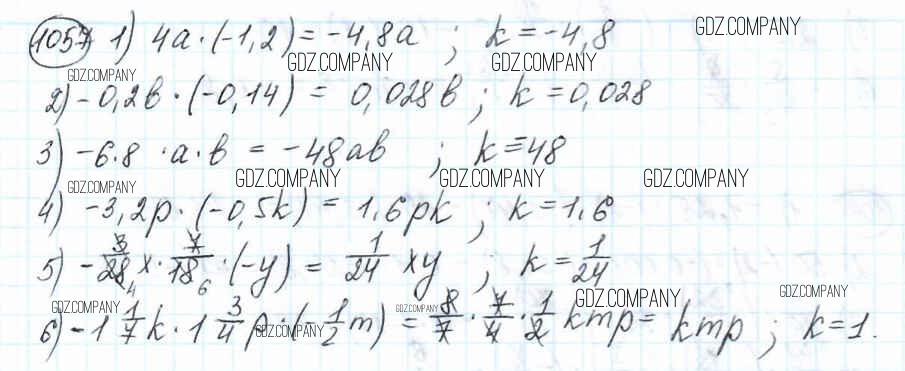 1057 1) 4a·(-1,2)=-4,8a ; k=-4,8 GDZ.COMPANY
GDZ.COMPANY GDZ.COMPANY GDZ.COMPANY
2) -0,2в·(-0,14) = 0,028в ; k=0,028
3) -6·8 ·a·в = -48aв ; k=-48
GDZ.COMPANY GDZ.COMPANY GDZ.COMPANY GDZ.COMPANY
4) -3,2p·(-0,5k) = 1,6pk ; k=1,6
5) -3/28 x · 7/18 ·(-y) = 1/24 xy ; k=1/24
GDZ.COMPANY GDZ.COMPANY GDZ.COMPANY GDZ.COMPANY GDZ.COMPANY
6) -1 1/7 k·1 3/4 p·(-1/2 m) = 8/7 · 7/4 · 1/2 kmp= kmp ; k=1.